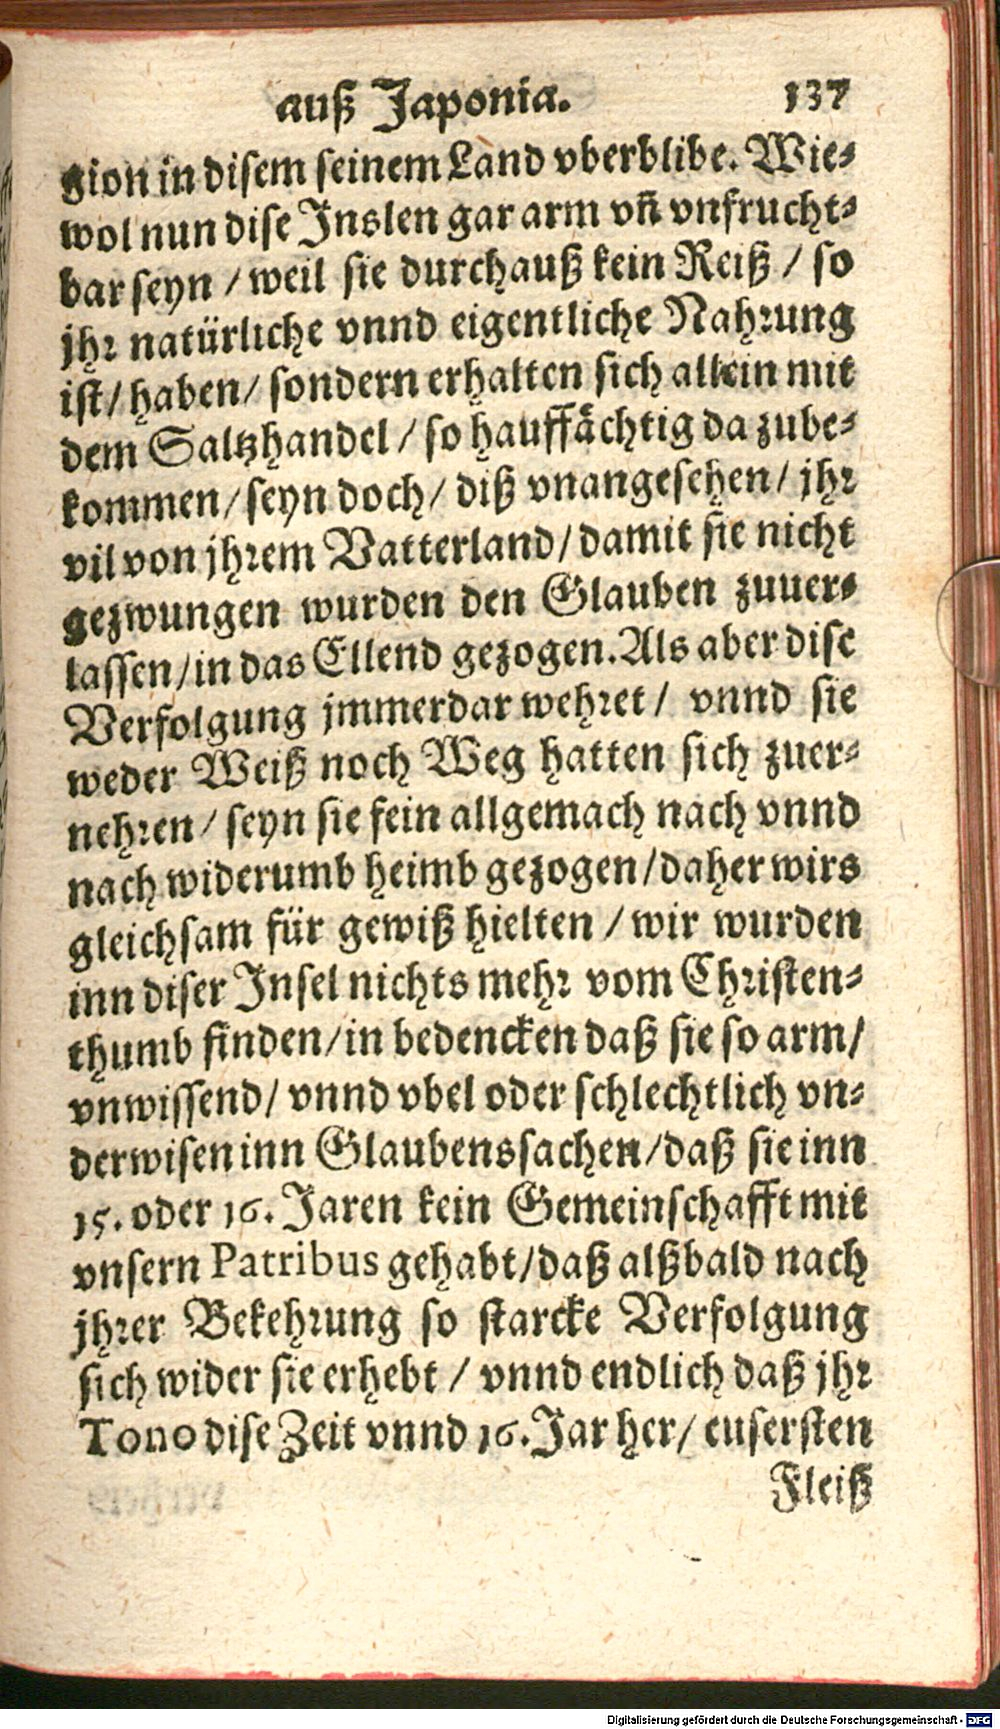 auß Japonia. 137
gion in disem seinem Land vberblibe. Wie⸗
wol nun dise Inslen gar arm vñ vnfrucht⸗
bar seyn / weil sie durchauß kein Reiß / so
jhr natürliche vnnd eigentliche Nahrung
ist / haben / sondern erhalten sich allein mit
dem Saltzhandel / so hauffächtig da zube⸗
kommen / seyn doch / diß vnangesehen / jhr
vil von jhrem Vatterland / damit sie nicht
gezwungen wurden den Glauben zuuer⸗
lassen / in das Ellend gezogen. Als aber dise
Verfolgung jmmerdar wehret / vnnd sie
weder Weiß noch Weg hatten sich zuer⸗
nehren / seyn sie fein allgemach nach vnnd
nach widerumb heimb gezogen / daher wirs
gleichsam für gewiß hielten / wir wurden
inn diser Insel nichts mehr vom Christen⸗
thumb finden / in bedencken daß sie so arm /
vnwissend / vnnd vbel oder schlechtlich vn⸗
derwisen inn Glaubenssachen / daß sie inn
15. oder 16. Jaren kein Gemeinschafft mit
vnsern Patribus gehabt / daß alßbald nach
jhrer Bekehrung so starcke Verfolgung
sich wider sie erhebt / vnnd endlich daß jhr
Tono dise Zeit vnnd 16. Jar her / eusersten
Fleiß
Digitalisierung gefördert durch die Deutsche Forschungsgemeinschaft - DFG